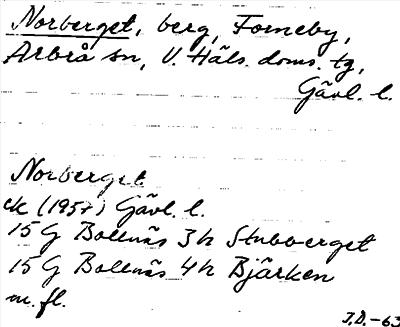 Norberget, berg, Forneby,
Arbrå sn, V. Häls. doms. tg,
Gävl. l.
Norberget
ek (1957) Gävl. l.
15 G Bollnäs 3h Stubberget
15 G Bollnäs 4h Bjärken
m. fl.
J.D.-63